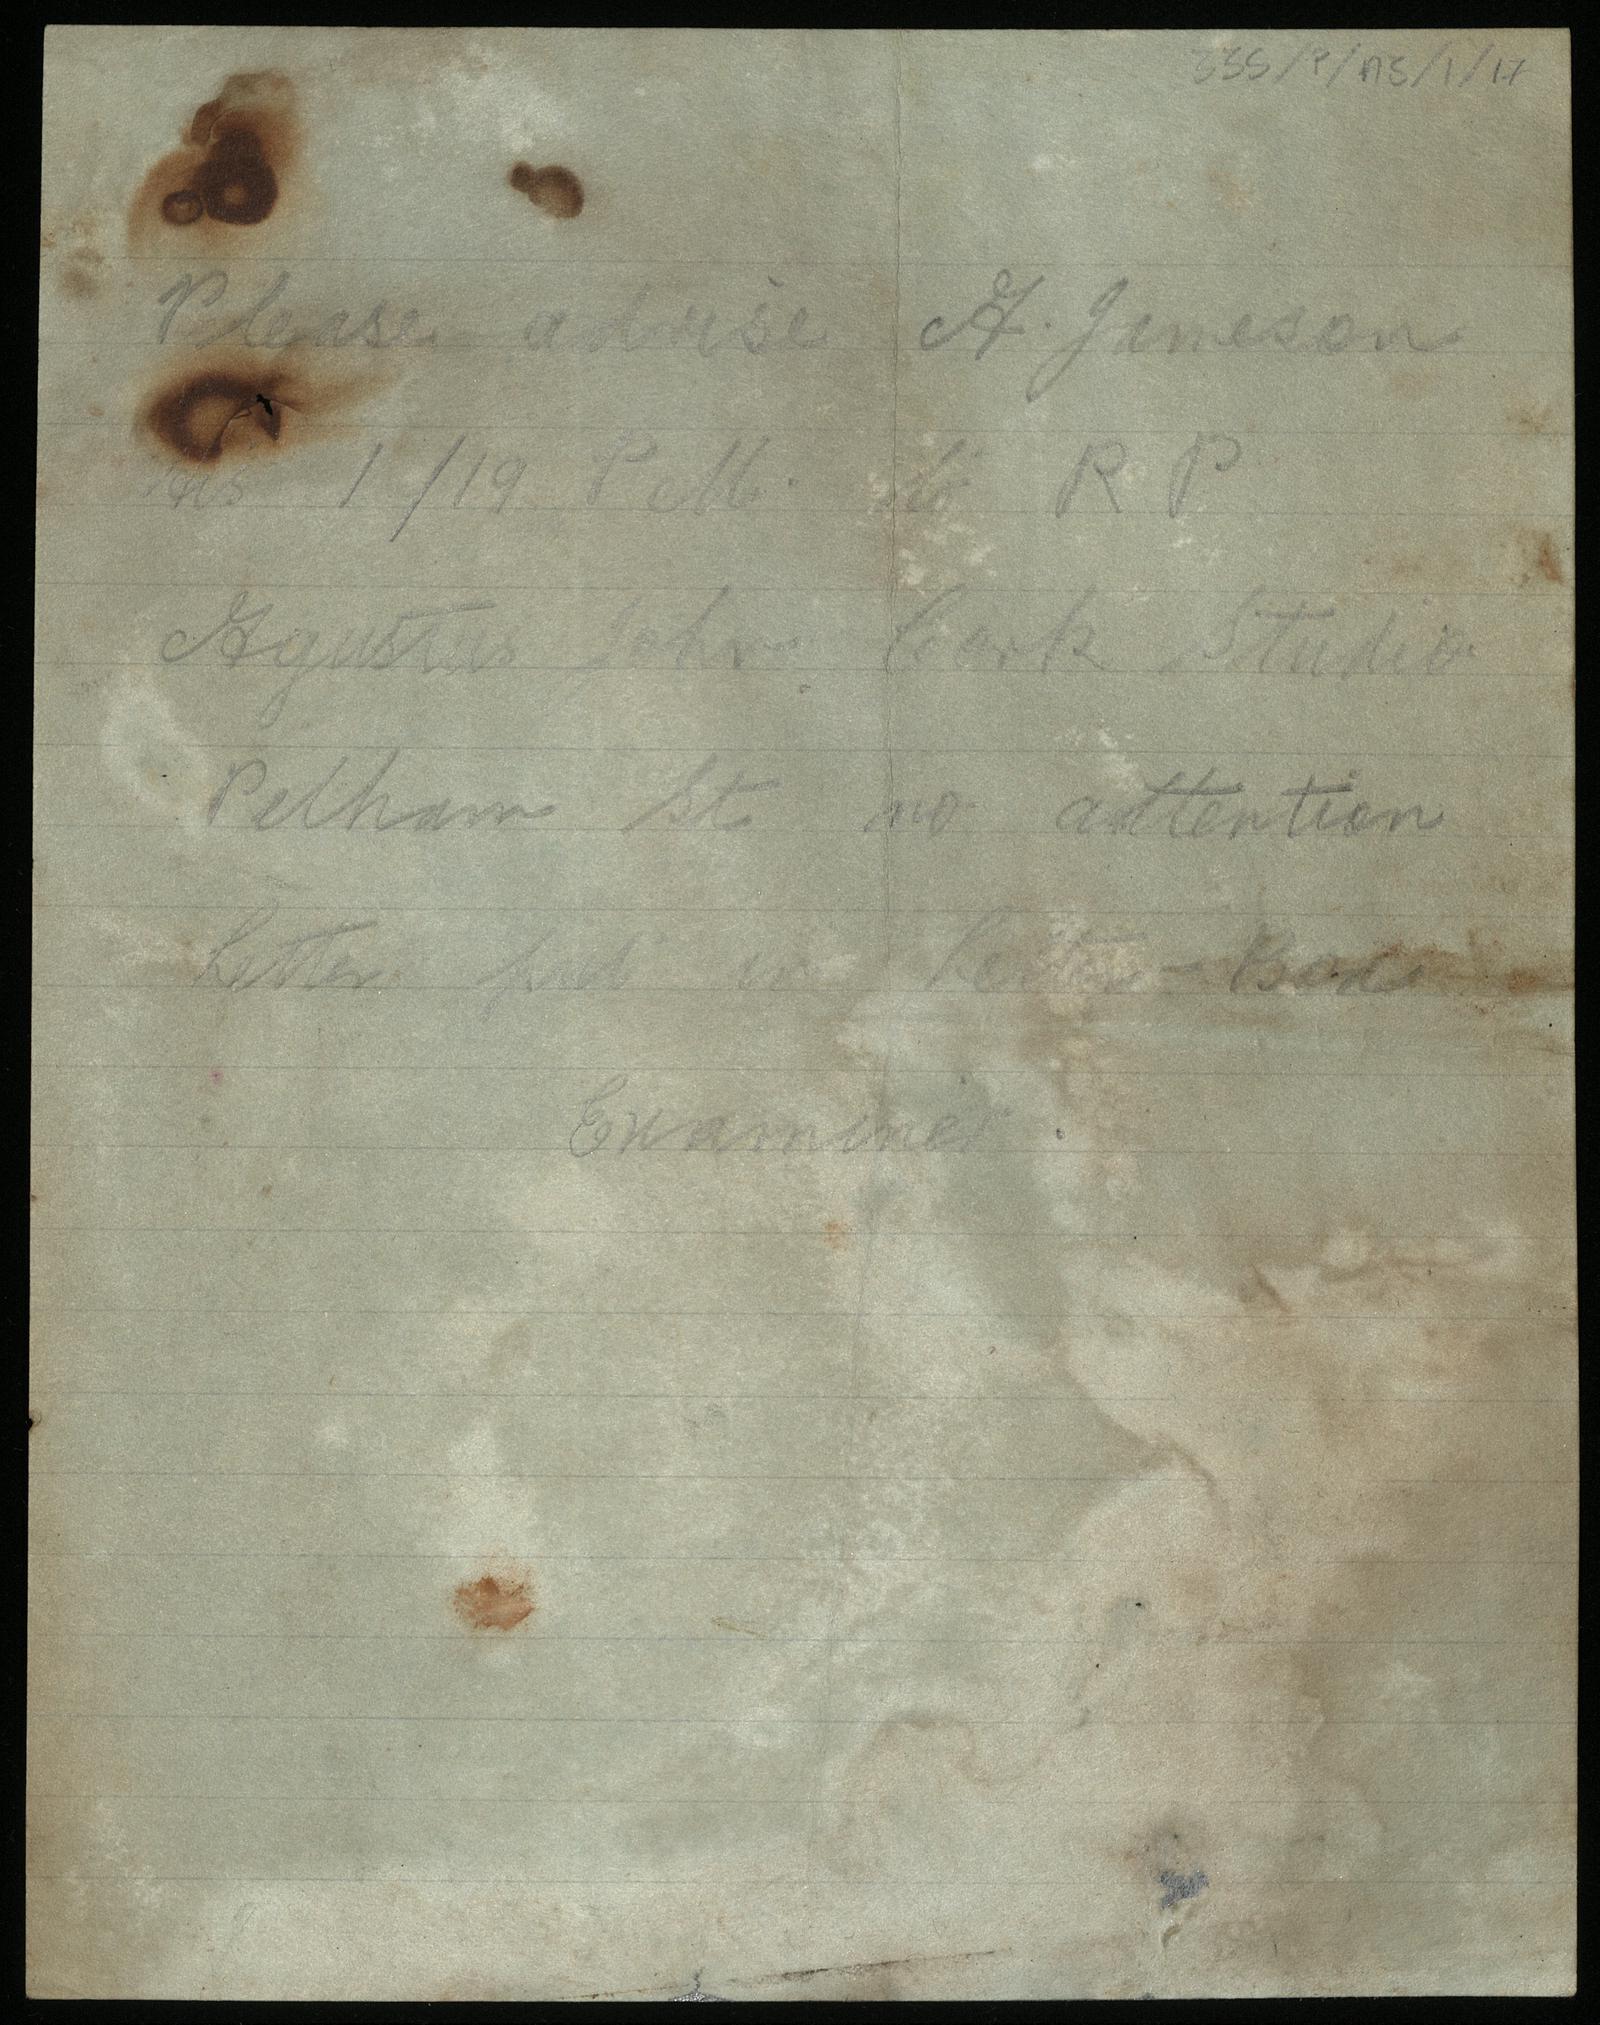 335/P/AS/1/17
Please advise A. Jameson
his 1/19 P.M. to R P
Agustus John Cork Studio
Pelham St no attention
Letter put in Letter-Box
Examiner